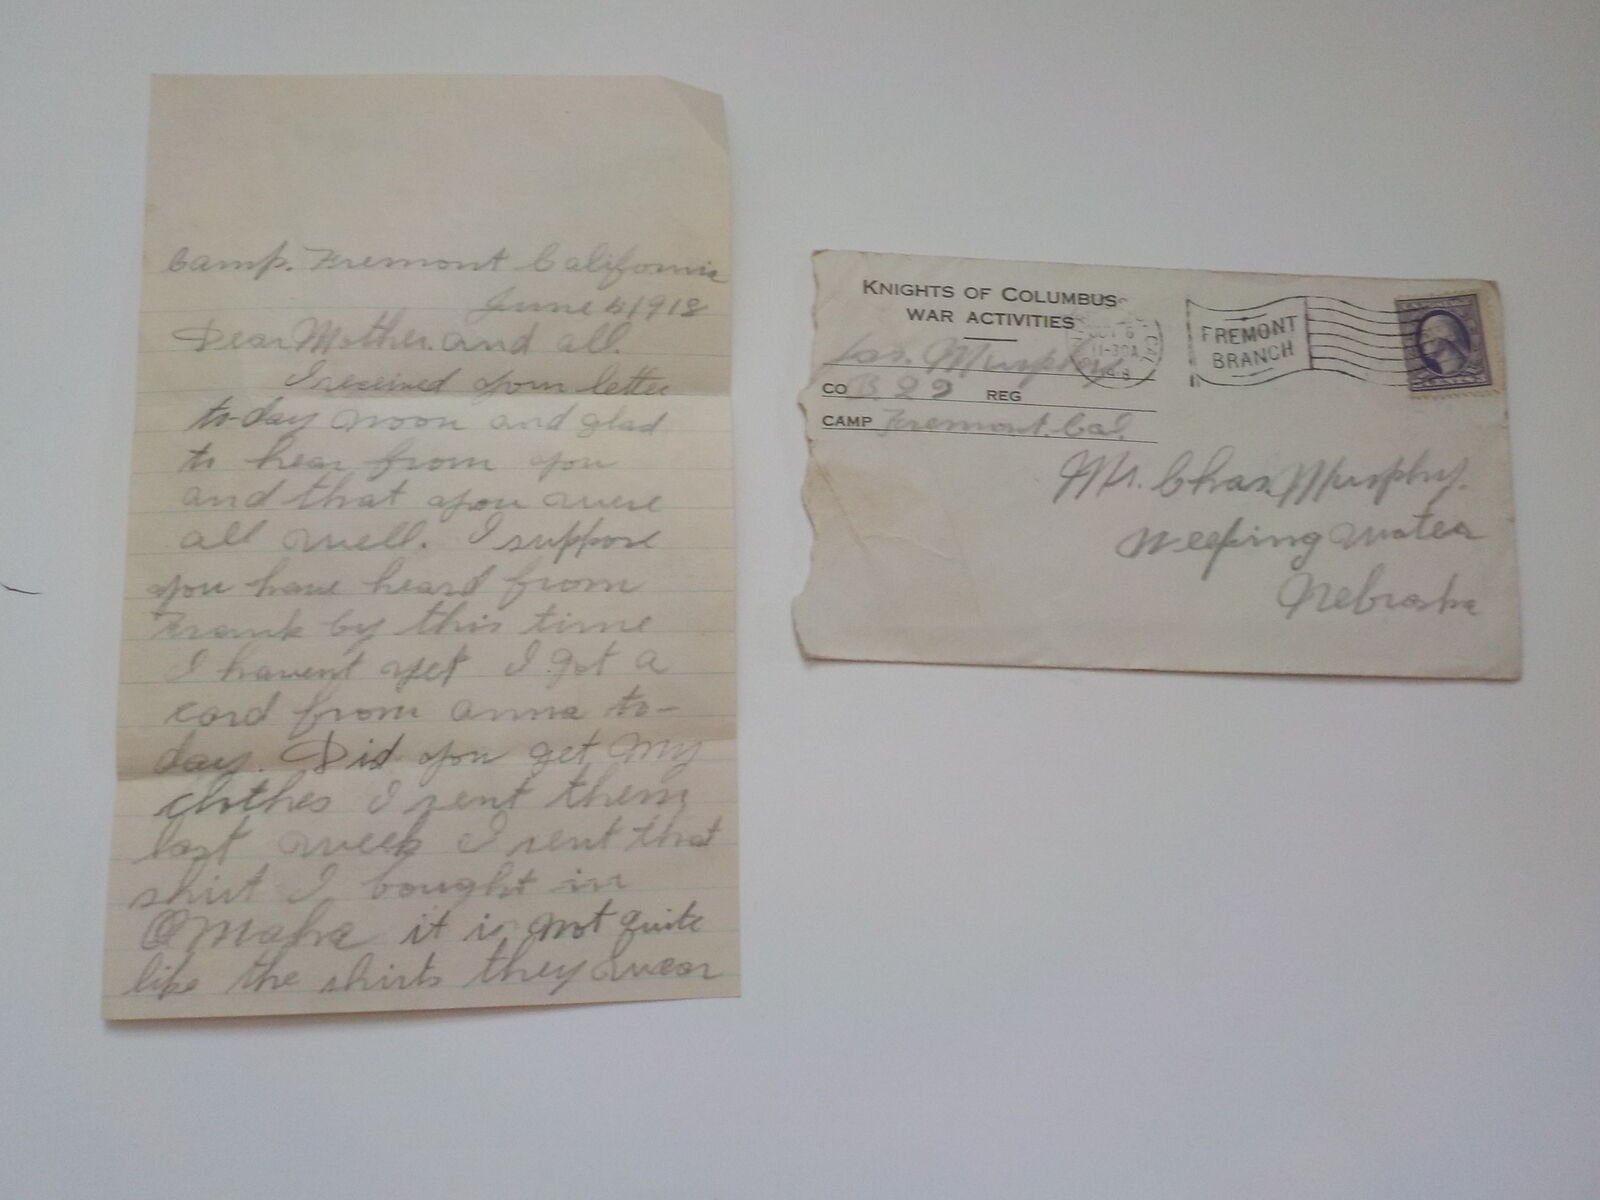 Camp. Fremont California
June 1918
Dear Mother. and all.
I received your letter
to-day noon and glad
to hear from you
and that you were
all well. I suppose
you have heard from
Frank by this time
I havent yet I got a
card from anna to-
day. Did you get my
clothes I sent them
last week I sent that
shirt I bought in
Omaha it is not quite
like the shirts they wear
KNIGHTS OF COLUMBUS
WAR ACTIVITIES
Jas. Murphy
CO B. 22 REG
CAMP Fremont. Cal.
11-30A
FREMONT
BRANCH
Mr. Chas. Murphy.
Weeping Water
Nebraska